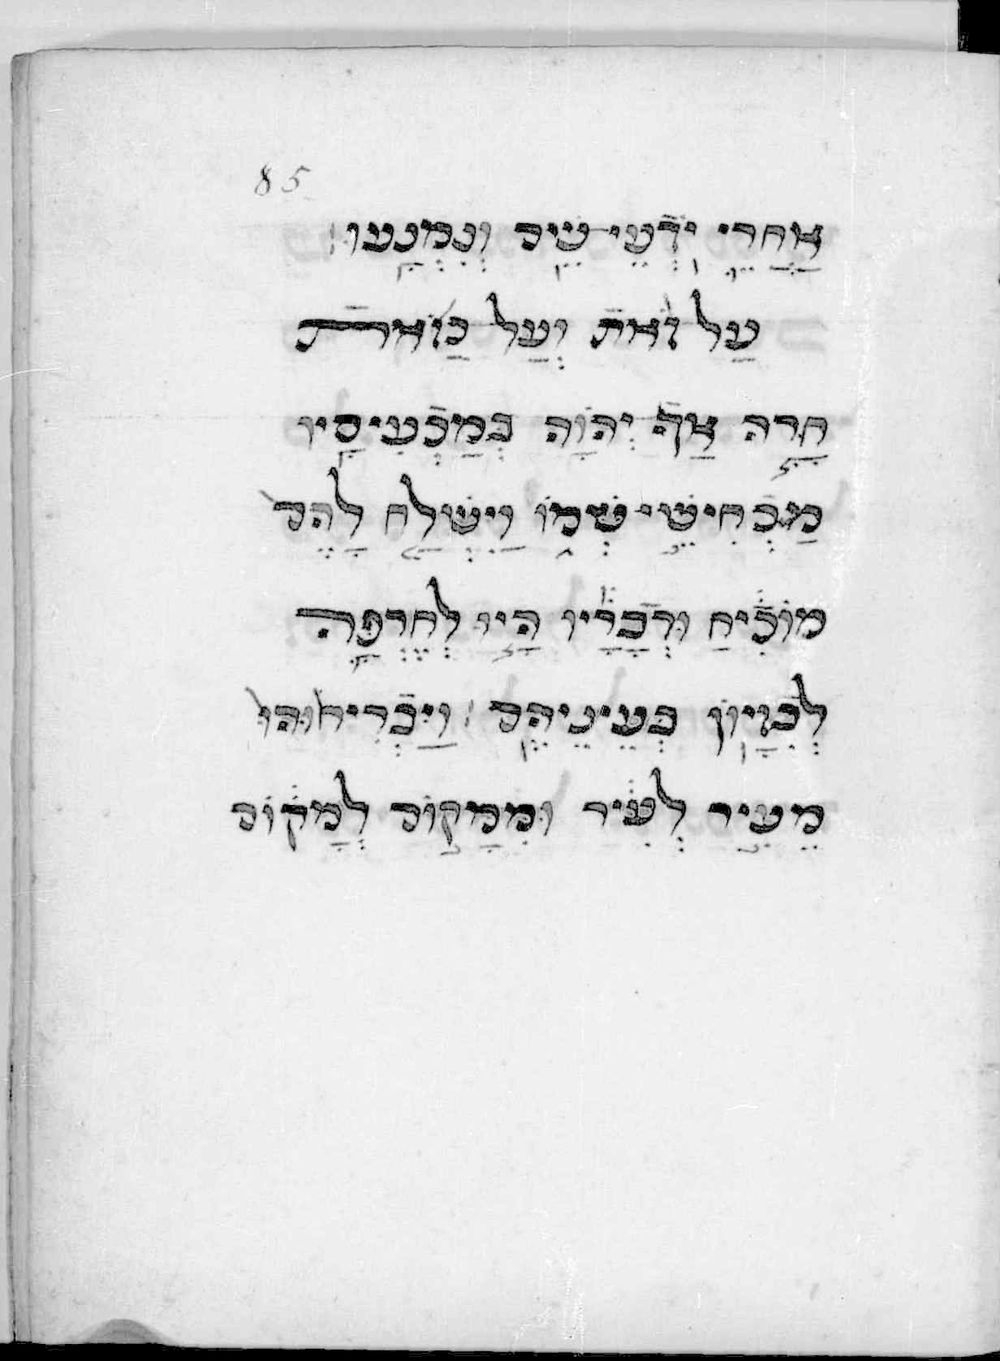 85
אַחֲרֵי יֹדְעֵי שֵׁם וְנִמְנָעוּ
עַל זֹאת וְעַל כָּזֹאת
חָרָה אַף יְהוָֹה בְּמַכְעִיסָיו
מַכְחִישֵׁי שְׁמוֹ וַיִּשְׁלַח לָהֶם
מוֹכִיחַ וּדְבָרָיו הָיוּ לְחֶרְפָּה
לְבִזָּיוֹן בְּעֵינֵיהֶם וַיַּבְרִיחוּהוּ
מֵעִיר לְעִיר וּמִמָּקוֹם לְמָקוֹם